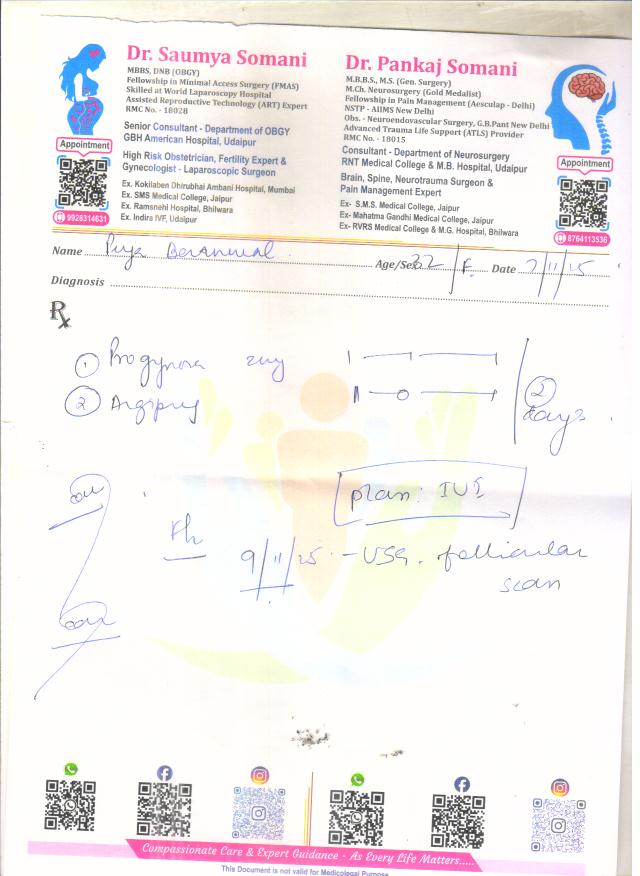 Dr. Saumya Somani
MBBS, DNB (OBGY)
Fellowship in Minimal Access Surgery (FMAS)
Skilled at World Laparoscopy Hospital
Assisted Reproductive Technology (ART) Expert
RMC No. - 18028
Senior Consultant - Department of OBGY
GBH American Hospital, Udaipur
High Risk Obstetrician, Fertility Expert &
Gynecologist - Laparoscopic Surgeon
Ex. Kokilaben Dhirubhai Ambani Hospital, Mumbai
Ex. SMS Medical College, Jaipur
Ex. Ramsnehi Hospital, Bhilwara
Ex. Indira IVF, Udaipur
Appointment
9928314631
Dr. Pankaj Somani
M.B.B.S., M.S. (Gen. Surgery)
M.Ch. Neurosurgery (Gold Medalist)
Fellowship in Pain Management (Aesculap - Delhi)
NSTP - AIIMS New Delhi
Obs. - Neuroendovascular Surgery, G.B.Pant New Delhi
Advanced Trauma Life Support (ATLS) Provider
RMC No. - 18015
Consultant - Department of Neurosurgery
RNT Medical College & M.B. Hospital, Udaipur
Brain, Spine, Neurotrauma Surgeon &
Pain Management Expert
Ex- S.M.S. Medical College, Jaipur
Ex- Mahatma Gandhi Medical College, Jaipur
Ex- RVRS Medical College & M.G. Hospital, Bhilwara
Appointment
8764113536
Name Age/Sex 32/F Date 7/11/25
Diagnosis
Rx
① Progynova 2mg 1 — 1 — 1
② 1 — 0 — 1
2 days
plan: IUI
9/11/25 - USG. follicular
scan
Compassionate Care & Expert Guidance - As Every Life Matters.....
This Document is not valid for Medicolegal Purpose